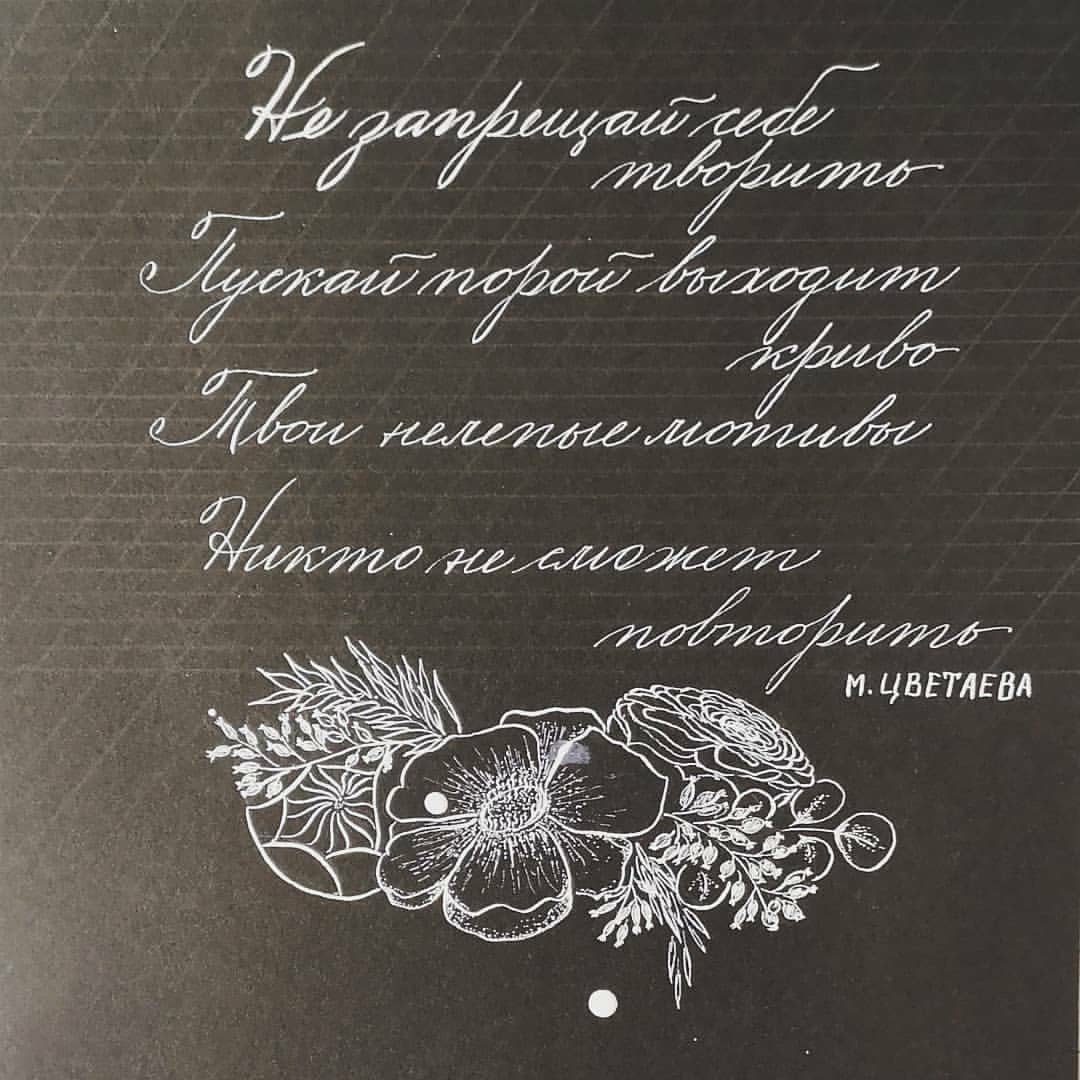 Не запрещай себе
творить
Пускай порой выходит
криво
Твои нелепые мотивы
Никто не сможет
повторить
М. ЦВЕТАЕВА